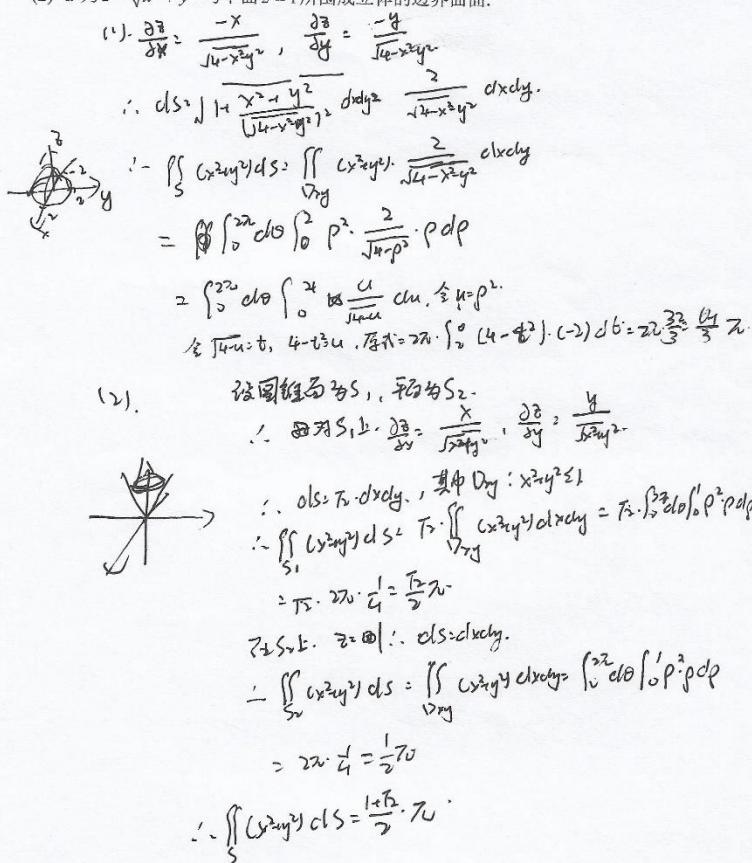 所围成立体的边界曲面.
(1). ∂z/∂x = -x/√(4-x²-y²) , ∂z/∂y = -y/√(4-x²-y²)
∴ dS = √(1+ (x²+y²)/(√(4-x²-y²))²) dxdy = 2/√(4-x²-y²) dxdy.
∴ ∬_S (x²+y²)dS = ∬_Dxy (x²+y²)· 2/√(4-x²-y²) dxdy
z
2
2
y
2
x
= ∫₀^2π dθ ∫₀^2 ρ²· 2/√(4-ρ²) ·ρdρ
= ∫₀^2π dθ ∫₀^4 u/√(4-u) du, 令u=ρ².
令√(4-u)=t, 4-t²=u, 原式=2π·∫₂^0 (4-t²)·(-2)dt = 2π·32/3 = 64/3 π
(2). 设圆锥面为S₁, 平面为S₂.
∴ S₁上. ∂z/∂x = x/√(x²+y²) , ∂z/∂y = y/√(x²+y²).
∴ dS=√2·dxdy, 其中Dxy: x²+y²≤1
∴ ∬_S₁ (x²+y²)dS = √2·∬_Dxy (x²+y²)dxdy = √2·∫₀^2π dθ∫₀^1 ρ²·ρdρ
= √2· 2π· 1/4 = √2/2 π
在S₂上. z=1 ∴ dS=dxdy.
∴ ∬_S₂ (x²+y²)dS = ∬_Dxy (x²+y²)dxdy = ∫₀^2π dθ∫₀^1 ρ²·ρdρ
= 2π· 1/4 = 1/2 π
∴ ∬_S (x²+y²)dS = (1+√2)/2 · π